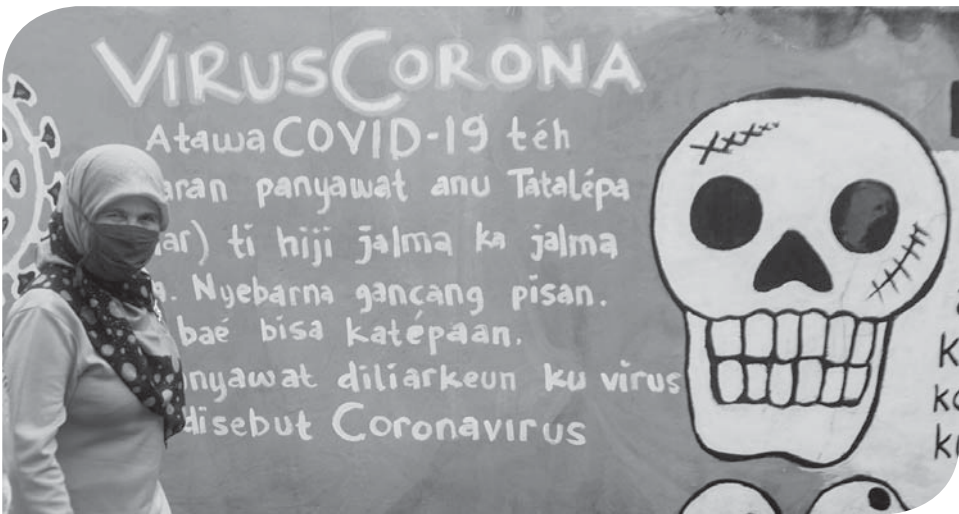 VIRUS CORONA
Atawa COVID-19 téh
aran panyawat anu Tatalépa
ar) ti hiji jalma ka jalma
Nyebarna gancang pisan.
baé bisa katépaan.
nyawat diliarkeun ku virus
disebut Coronavirus